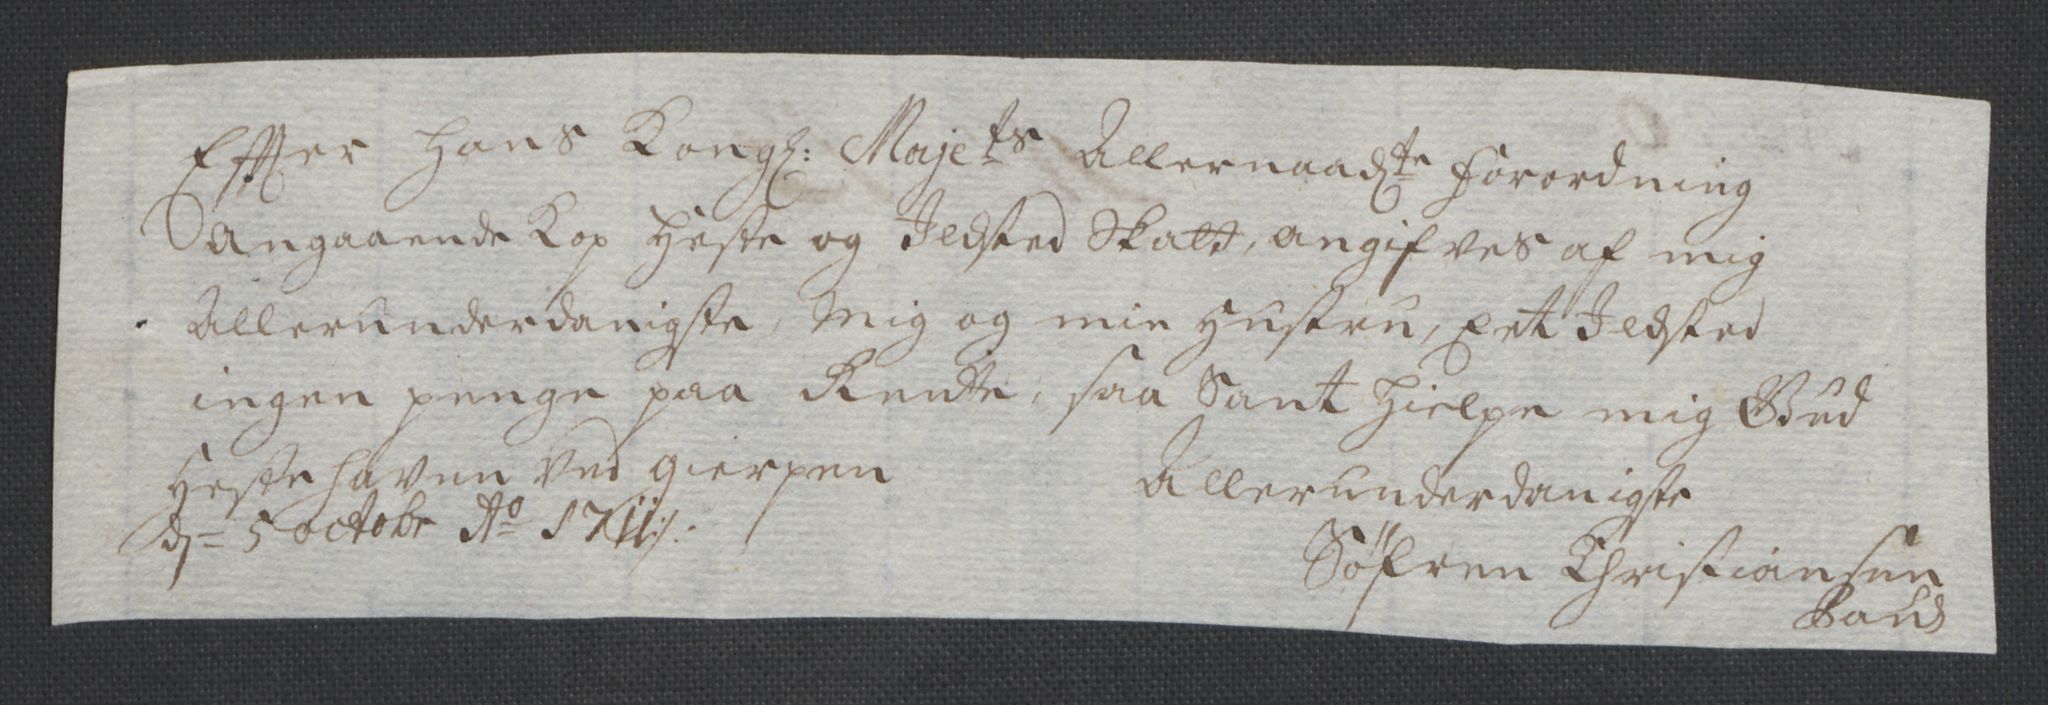 Effter Hans Kongl: Majets Allernaadste forordning
Angaaende Kop Heste og Ildsted Skatt, angifves af mig
Allerunderdanigste, Mig og min Hustru, Eet Ildsted
ingen penge paa Rente, saa Sant Hielpe mig Gud
Hestehaven Ved gierpen
dn 5 octobr Ao 1711:/.
Allerunderdanigste
Söfren Christiansen